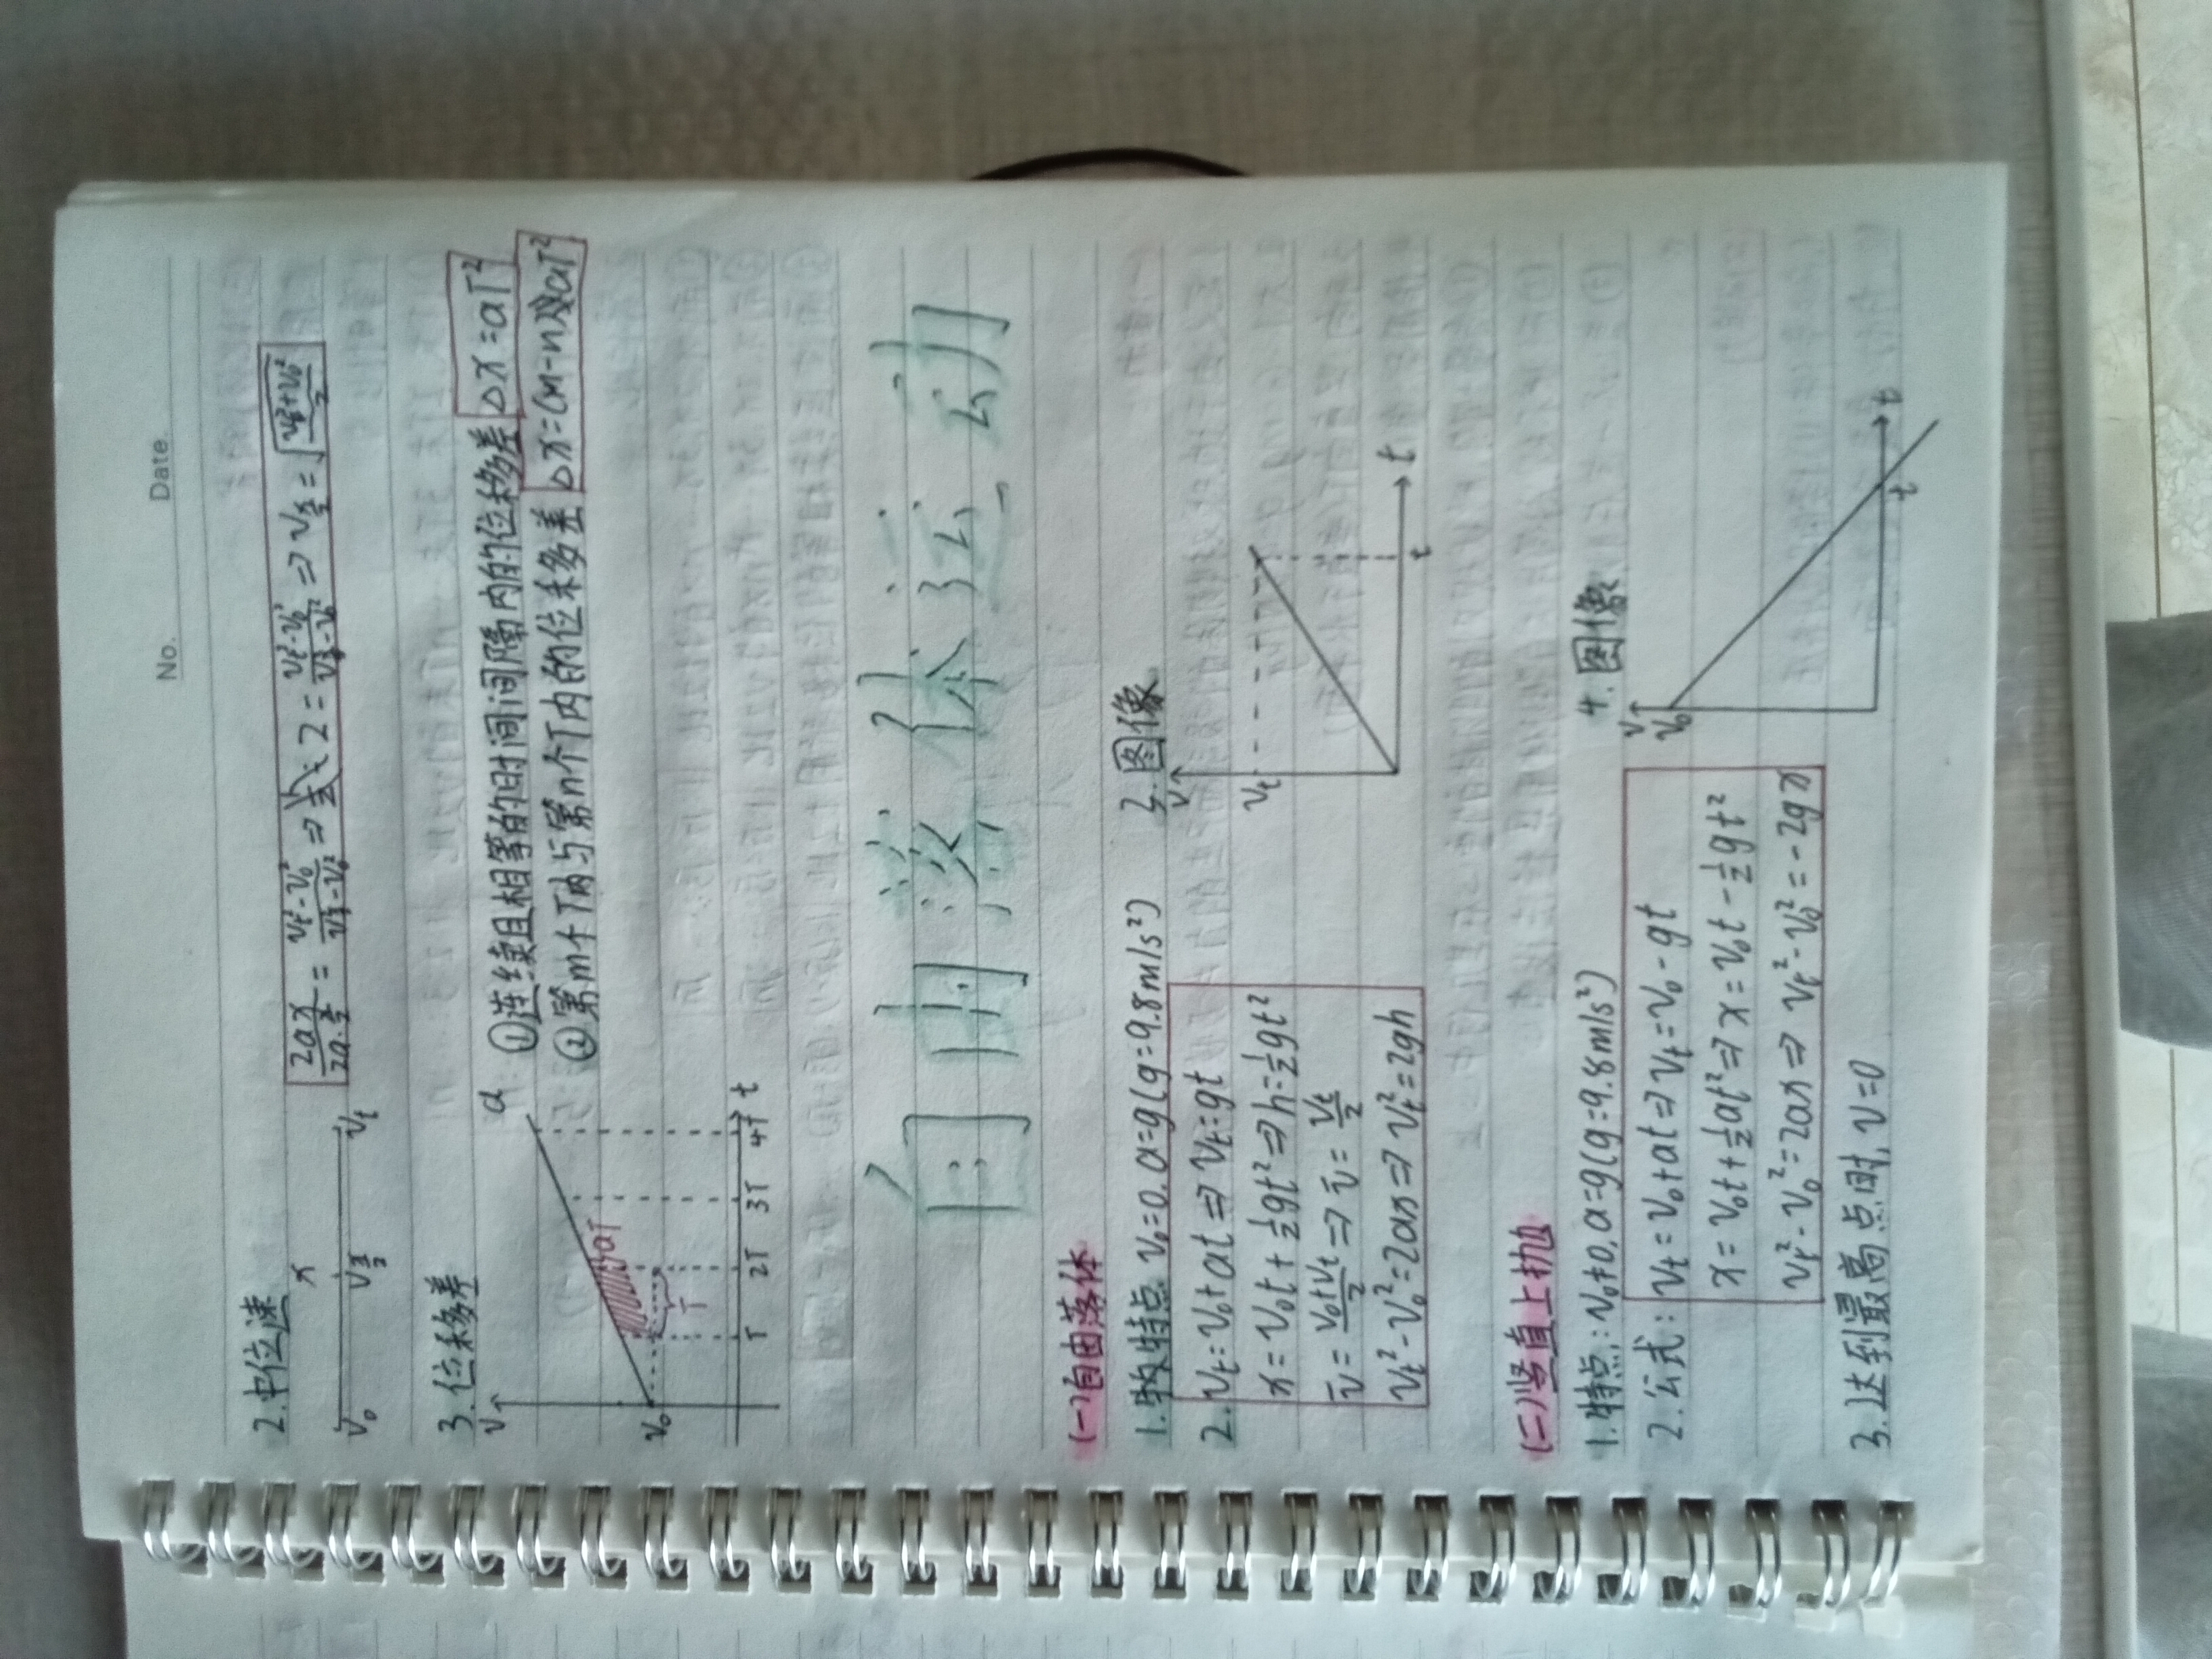 No.
Date.
2.中位速
x
v₀ v_{x/2} v_t
2ax/(2a·x/2) = (v_t²-v₀²)/(v_{x/2}²-v₀²) ⇒ 2 = (v_t²-v₀²)/(v_{x/2}²-v₀²) ⇒ v_{x/2} = √((v_t²+v₀²)/2)
3.位移差
①连续且相等的时间间隔内的位移差 △x=aT²
②第m个T内与第n个T内的位移差 △x=(m-n)aT²
v
a
v₀
aT
T
T 2T 3T 4T t
自由落体运动
(一)自由落体
1.特点 v₀=0.a=g(g=9.8m/s²)
2. v_t=v₀+at⇒v_t=gt
x=v₀t+½gt²⇒h=½gt²
v̄=(v₀+v_t)/2⇒v̄=v_t/2
v_t²-v₀²=2ax⇒v_t²=2gh
3.图像
v
v_t
t t
(二)竖直上抛
1.特点:v₀≠0,a=g(g=9.8m/s²)
2.公式: v_t=v₀+at⇒v_t=v₀-gt
x=v₀t+½at²⇒x=v₀t-½gt²
v_t²-v₀²=2ax⇒v_t²-v₀²=-2gx
3.达到最高点时,v=0
4.图像
v
v₀
t t